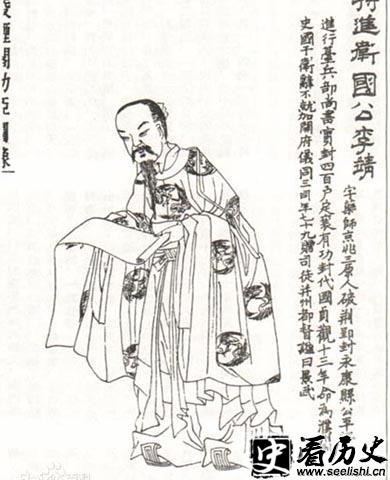 特進衛國公李靖
字藥師京兆三原人破荆郢封永康縣公平
進行臺兵部尚書實封四百户定襄有功封代國貞觀十三年命為濮
史國于衛離不就加開府儀同三司年七十九贈司徒并州都督謚曰景武
凌煙閣功臣圖像
史看历史
www.seelishi.cn